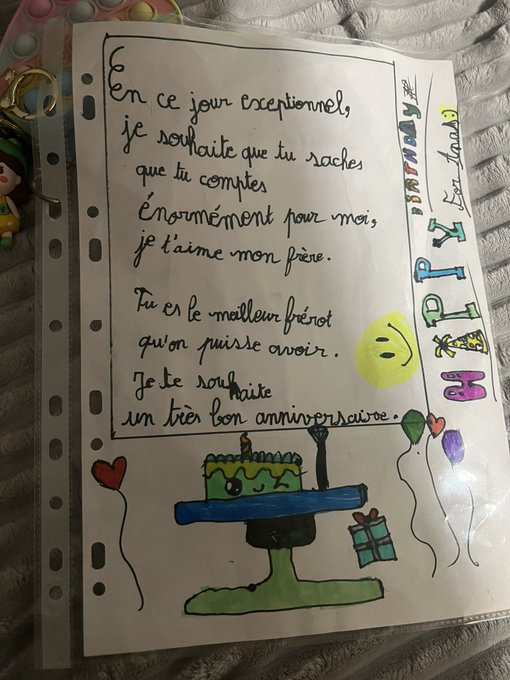 En ce jour exceptionnel,
je souhaite que tu saches
que tu comptes
Énormément pour moi,
je t'aime mon frère.
Tu es le meilleur frérot
qu'on puisse avoir.
Je te souhaite
un très bon anniversaire.
HAPPY
BIRTHDAY
For Anas